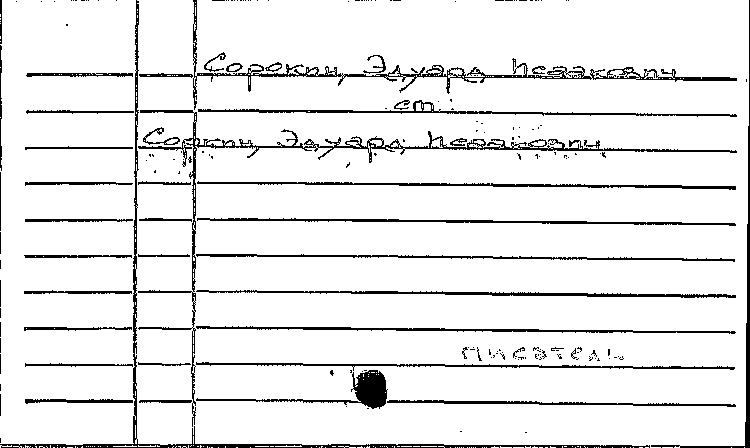 Сорокин, Эдуард Исаакович
см.
Соркин, Эдуард Исаакович
писатель